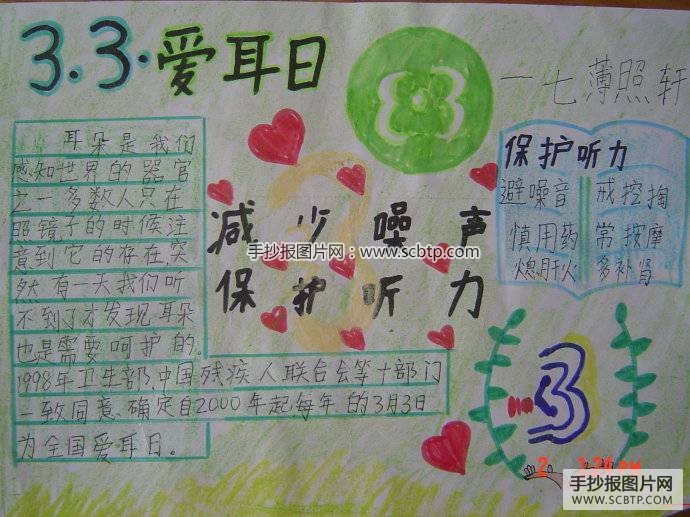 3.3·爱耳日
一七薄照轩
耳朵是我们
感知世界的器官
之一多数人只在
照镜子的时候注
意到它的存在突
然有一天我们听
不到了才发现耳朵
也是需要呵护的。
1998年卫生部、中国残疾人联合会等十部门
一致同意、确定自2000年起每年的3月3日
为全国爱耳日。
减少噪声
保护听力
手抄报图片网:www.scbtp.com
保护听力
避噪音 戒挖掏
慎用药 常按摩
熄肝火 多补肾
3
手抄报图片网
WWW.SCBTP.COM